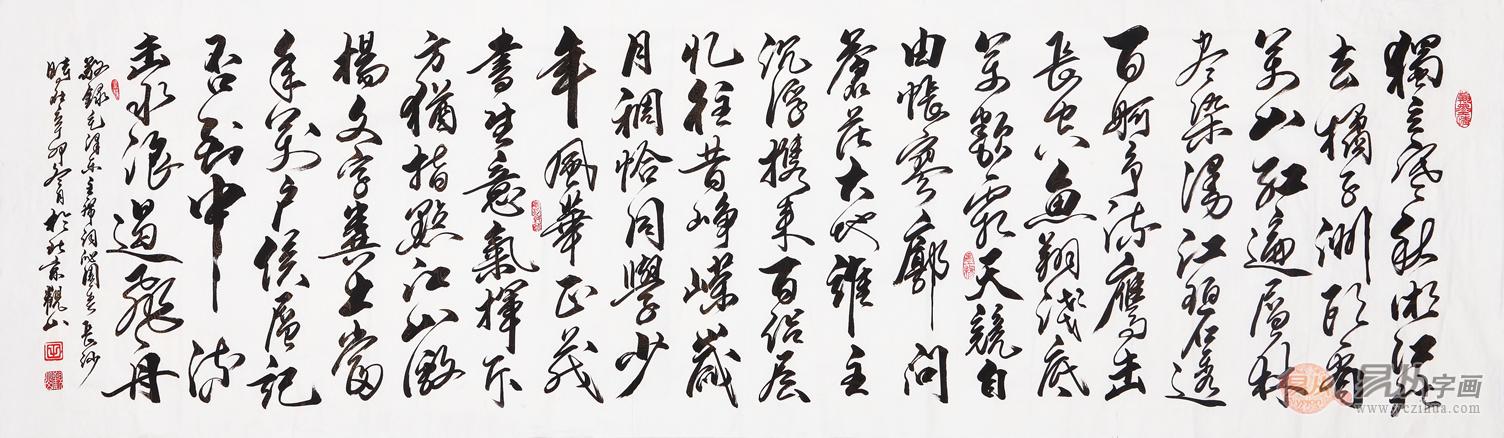 獨立寒秋湘江北
去橘子洲頭看
萬山紅遍層林
尽染漫江碧透
百舸爭流鷹击
長空魚翔淺底
萬類霜天競自
由悵寥廓問
蒼茫大地誰主
沉浮携来百侣曾
忆往昔崢嶸歲
月稠恰同學少
年風華正茂
書生意氣揮斥
方猶指點江山激
揚文字糞土當
年萬戶侯曾記
否到中流
击水浪遏飛舟
敬錄毛澤東主席詞沁園春長沙
時在辛卯冬月於北京觀山
易从字画
www.yczihua.com